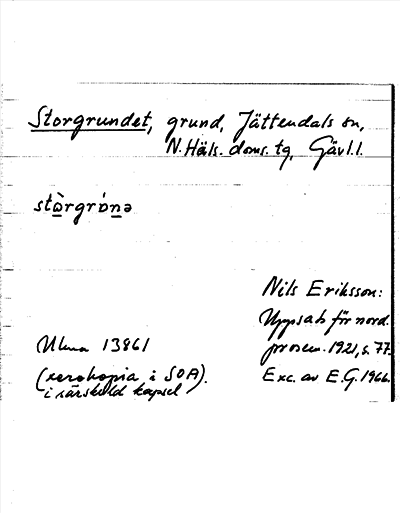 Storgrundet, grund, Jättendals sn,
N. Häls. doms. tg, Gävl.l.
stòrgrónə
Nils Eriksson:
Uppsats för nord.
prosem. 1921, s. 77.
Exc. av E.G. 1966.
Ulma 13861
(xerokopia i SOA).
i särskild kapsel